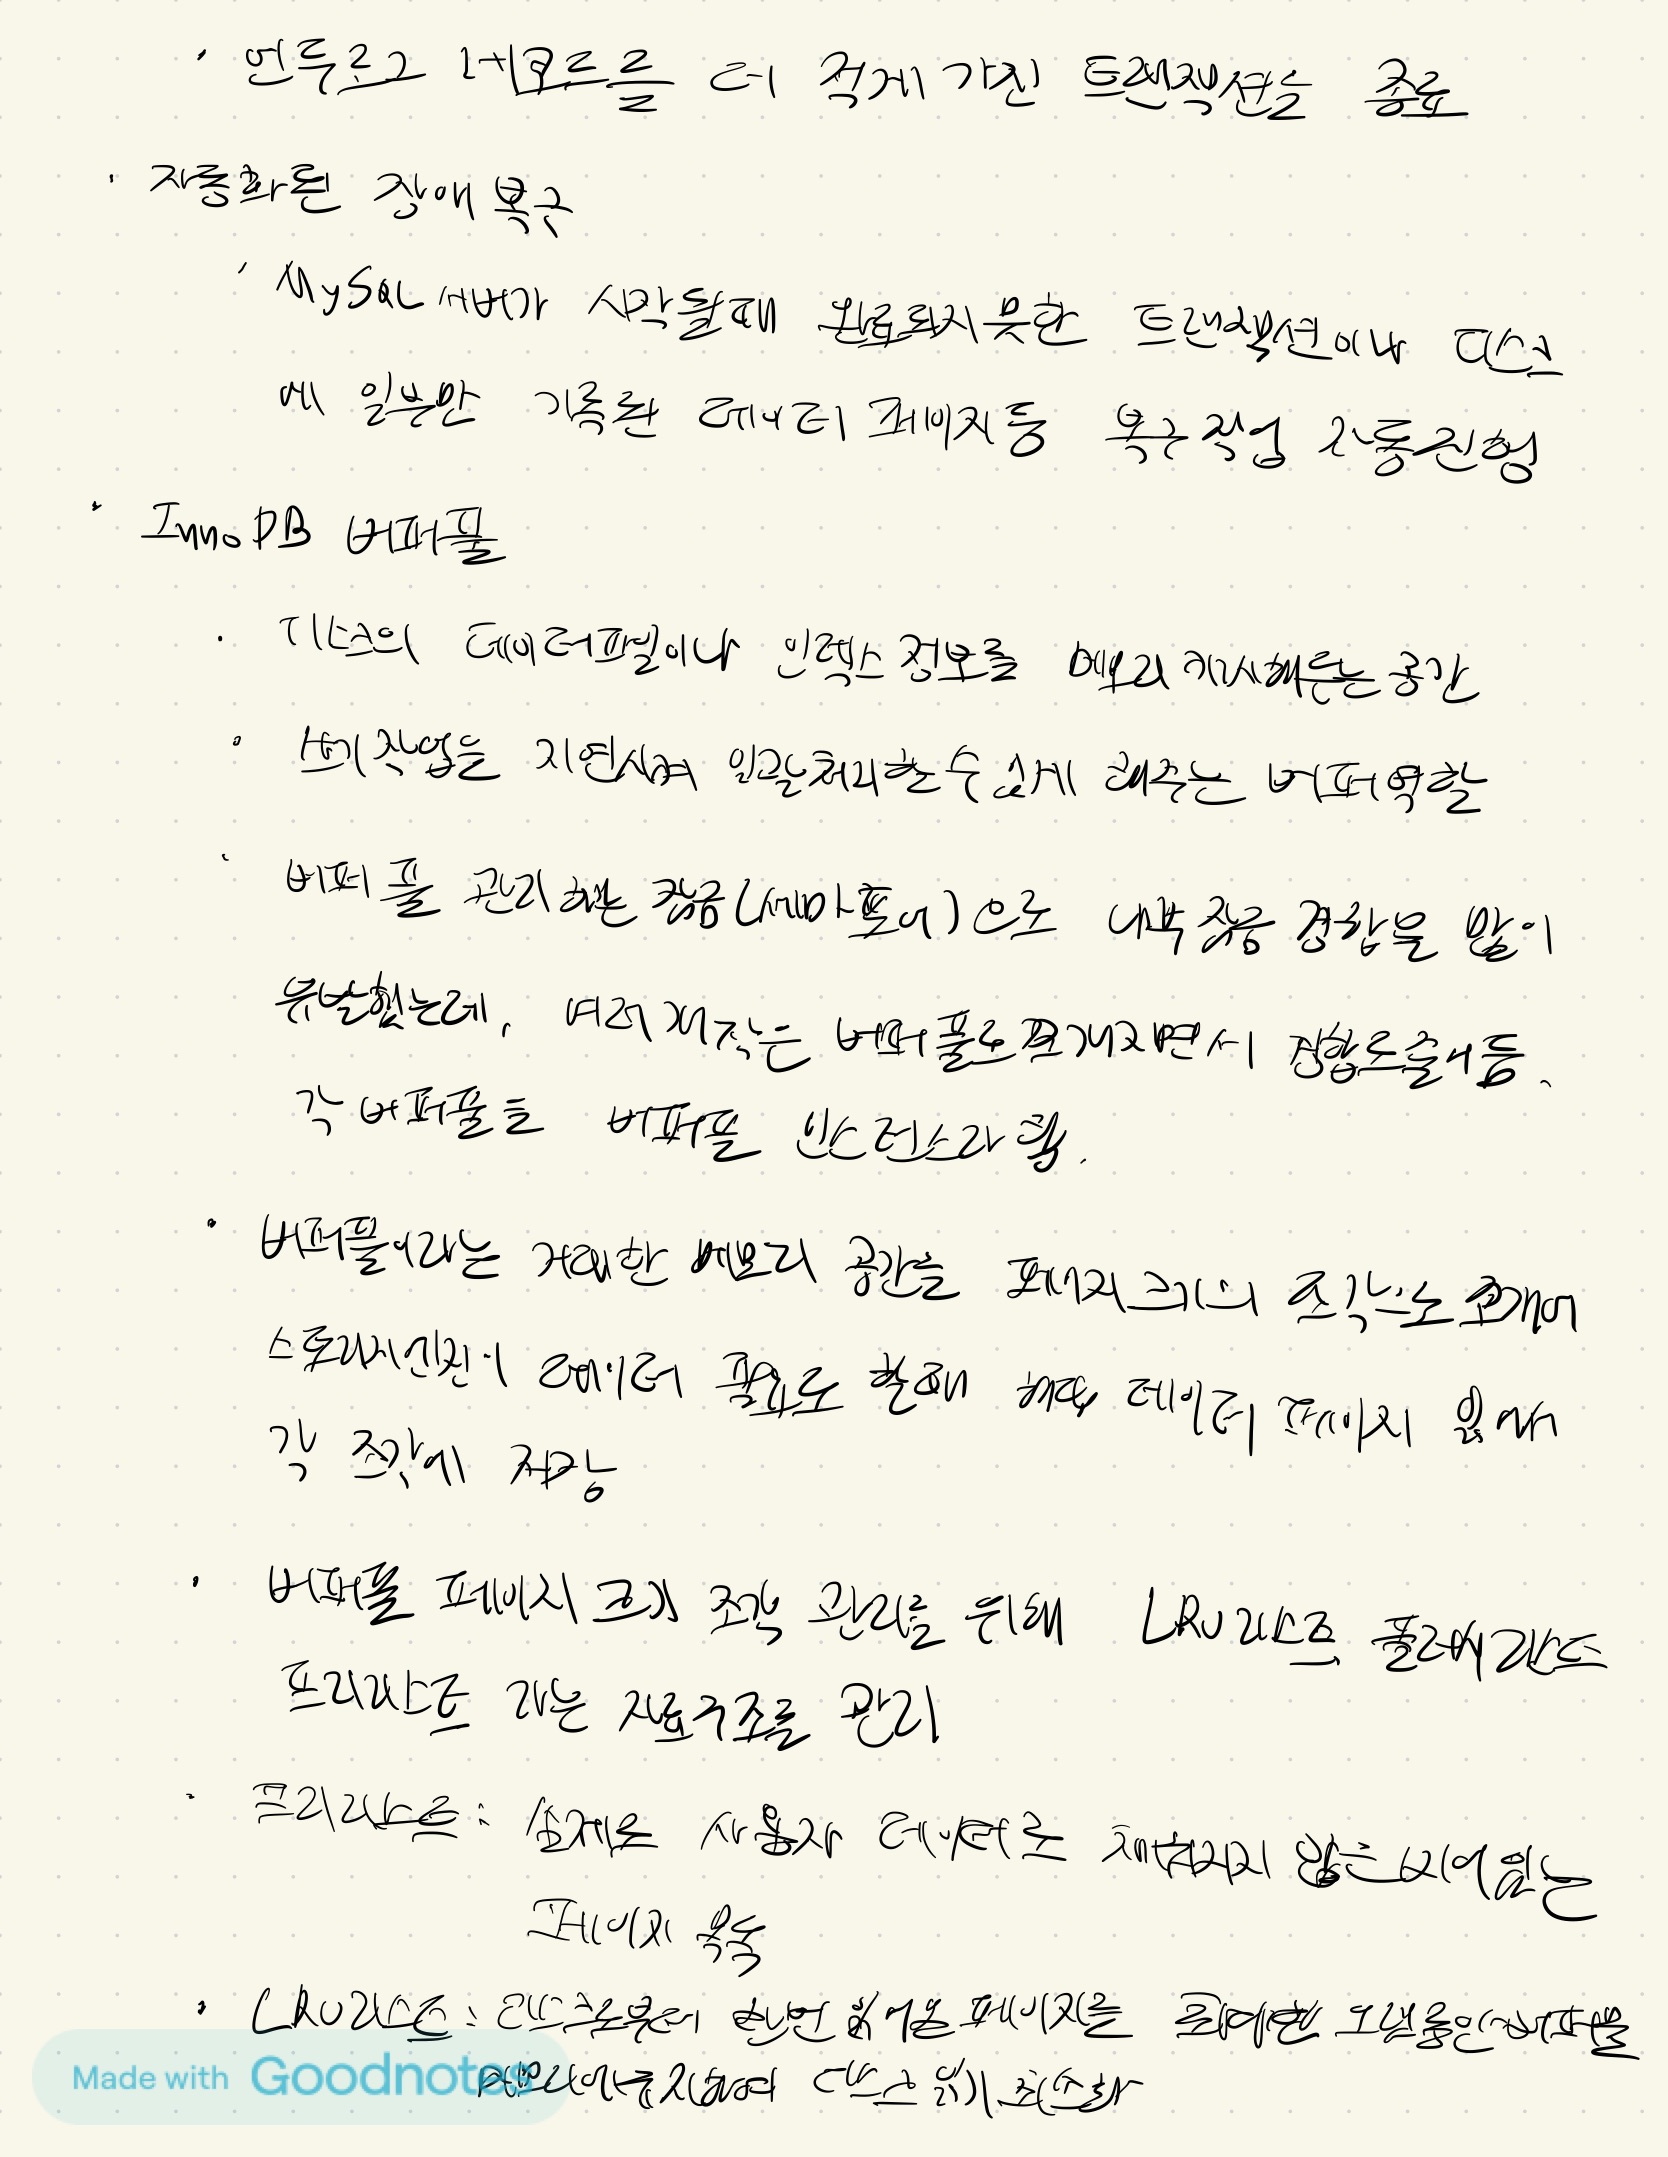 · 언두로그 레코드를 더 적게 가진 트랜잭션을 종료
· 자동화된 장애복구
· MySQL서버가 시작될때 완료되지못한 트랜잭션이나 디스크
에 일부만 기록된 데이터 페이지등 복구작업 자동진행
· InnoDB 버퍼풀
· 디스크의 데이터파일이나 인덱스정보를 메모리 캐시해두는 공간
· 쓰기작업을 지연시켜 일괄처리할수 있게 해주는 버퍼역할
· 버퍼풀 관리하는 잠금(세마포어)으로 내부 잠금 경합을 많이
유발했는데, 여러개작은 버퍼풀로쪼개지면서 경합도줄어듬.
각 버퍼풀을 버퍼풀 인스턴스라 함.
· 버퍼풀이라는 거대한 메모리 공간을 페이지크기의 조각으로쪼개어
스토리지엔진이 데이터 필요로 할때 해당 데이터 페이지 읽어서
각 조각에 저장
· 버퍼풀 페이지 크기 조각 관리를 위해 LRU리스트 플러시리스트
프리리스트 라는 자료구조를 관리
· 프리리스트: 실제로 사용자 데이터로 채워지지 않은비어있는
페이지 목록
· LRU리스트: 디스크로부터 한번 읽어온 페이지를 최대한 오랫동안 버퍼풀
메모리에유지하여 디스크읽기최소화
Made with Goodnotes